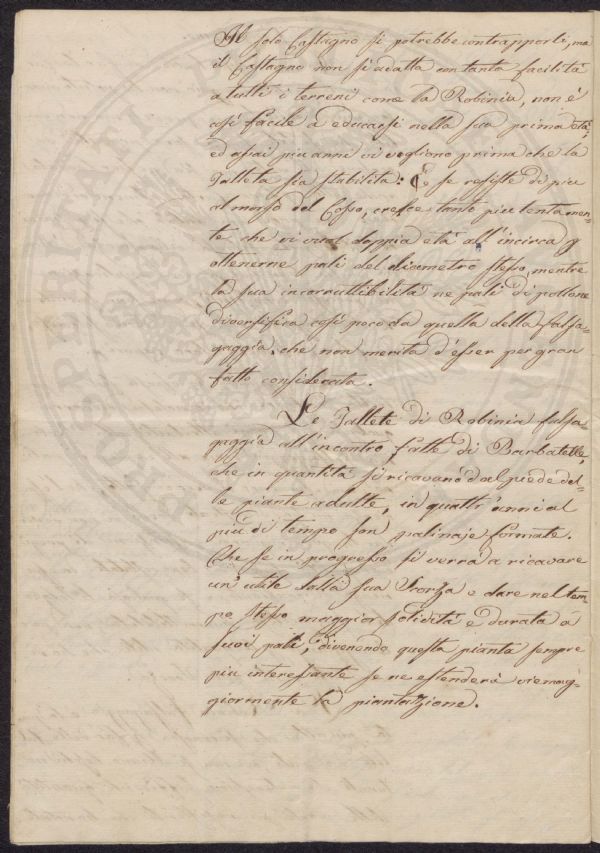 Il solo Castagno si potrebbe contrapporli, ma
il Castagno non si adatta con tanta facilità
a tutti i terreni come la Robinia, non é
così facile a educarsi nella sua prima età,
ed assai piu anni vi vogliono prima che la
Palleta sia stabilita: E se resiste di piu
al morso del Cosso, cresce tanto piu lentamen-
te che vi vuol doppia età all'incirca p
ottenerne pali del diametro stesso, mentre
la sua incorruttibilità ne pali di pollone
diversifica così poco da quella della falsa-
gaggia, che non merita d'esser per gran
fatto considerata.
Le Pallete di Robinia falsa-
gaggia all'incontro fatte di Barbatelle,
che in quantità si ricavano dal piede del-
le piante adulte, in quattr'anni al
piu di tempo son palinaje formate.
Che se in progresso si verrà a ricavare
un' utile dalla sua Scorza e dare nel tem-
po stesso maggior solidità e durata a
suoi pali, divenendo questa pianta sempre
piu interessante se ne estenderà viemag-
giormente la piantazione.
PROSPERITATI